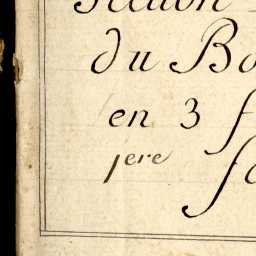 du Bo
en 3 f
1ere fo